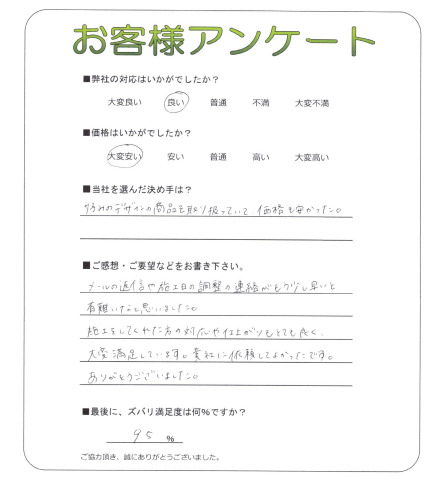 お客様アンケート
■弊社の対応はいかがでしたか?
大変良い 良い 普通 不満 大変不満
■価格はいかがでしたか?
大変安い 安い 普通 高い 大変高い
■当社を選んだ決め手は?
好みのデザインの商品を取り扱っていて 価格も安かった。
■ご感想・ご要望などをお書き下さい。
メールの返信や施工日の調整の連絡がもう少し早いと
有難いなと思いました。
施工をしてくれた方の対応や仕上がりもとても良く、
大変満足しています。貴社に依頼してよかったです。
ありがとうございました。
■最後に、ズバリ満足度は何%ですか?
95 %
ご協力頂き、誠にありがとうございました。